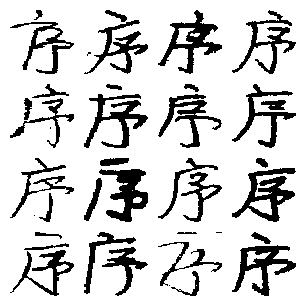 序序序序
序序序序
序序序序
序序序序